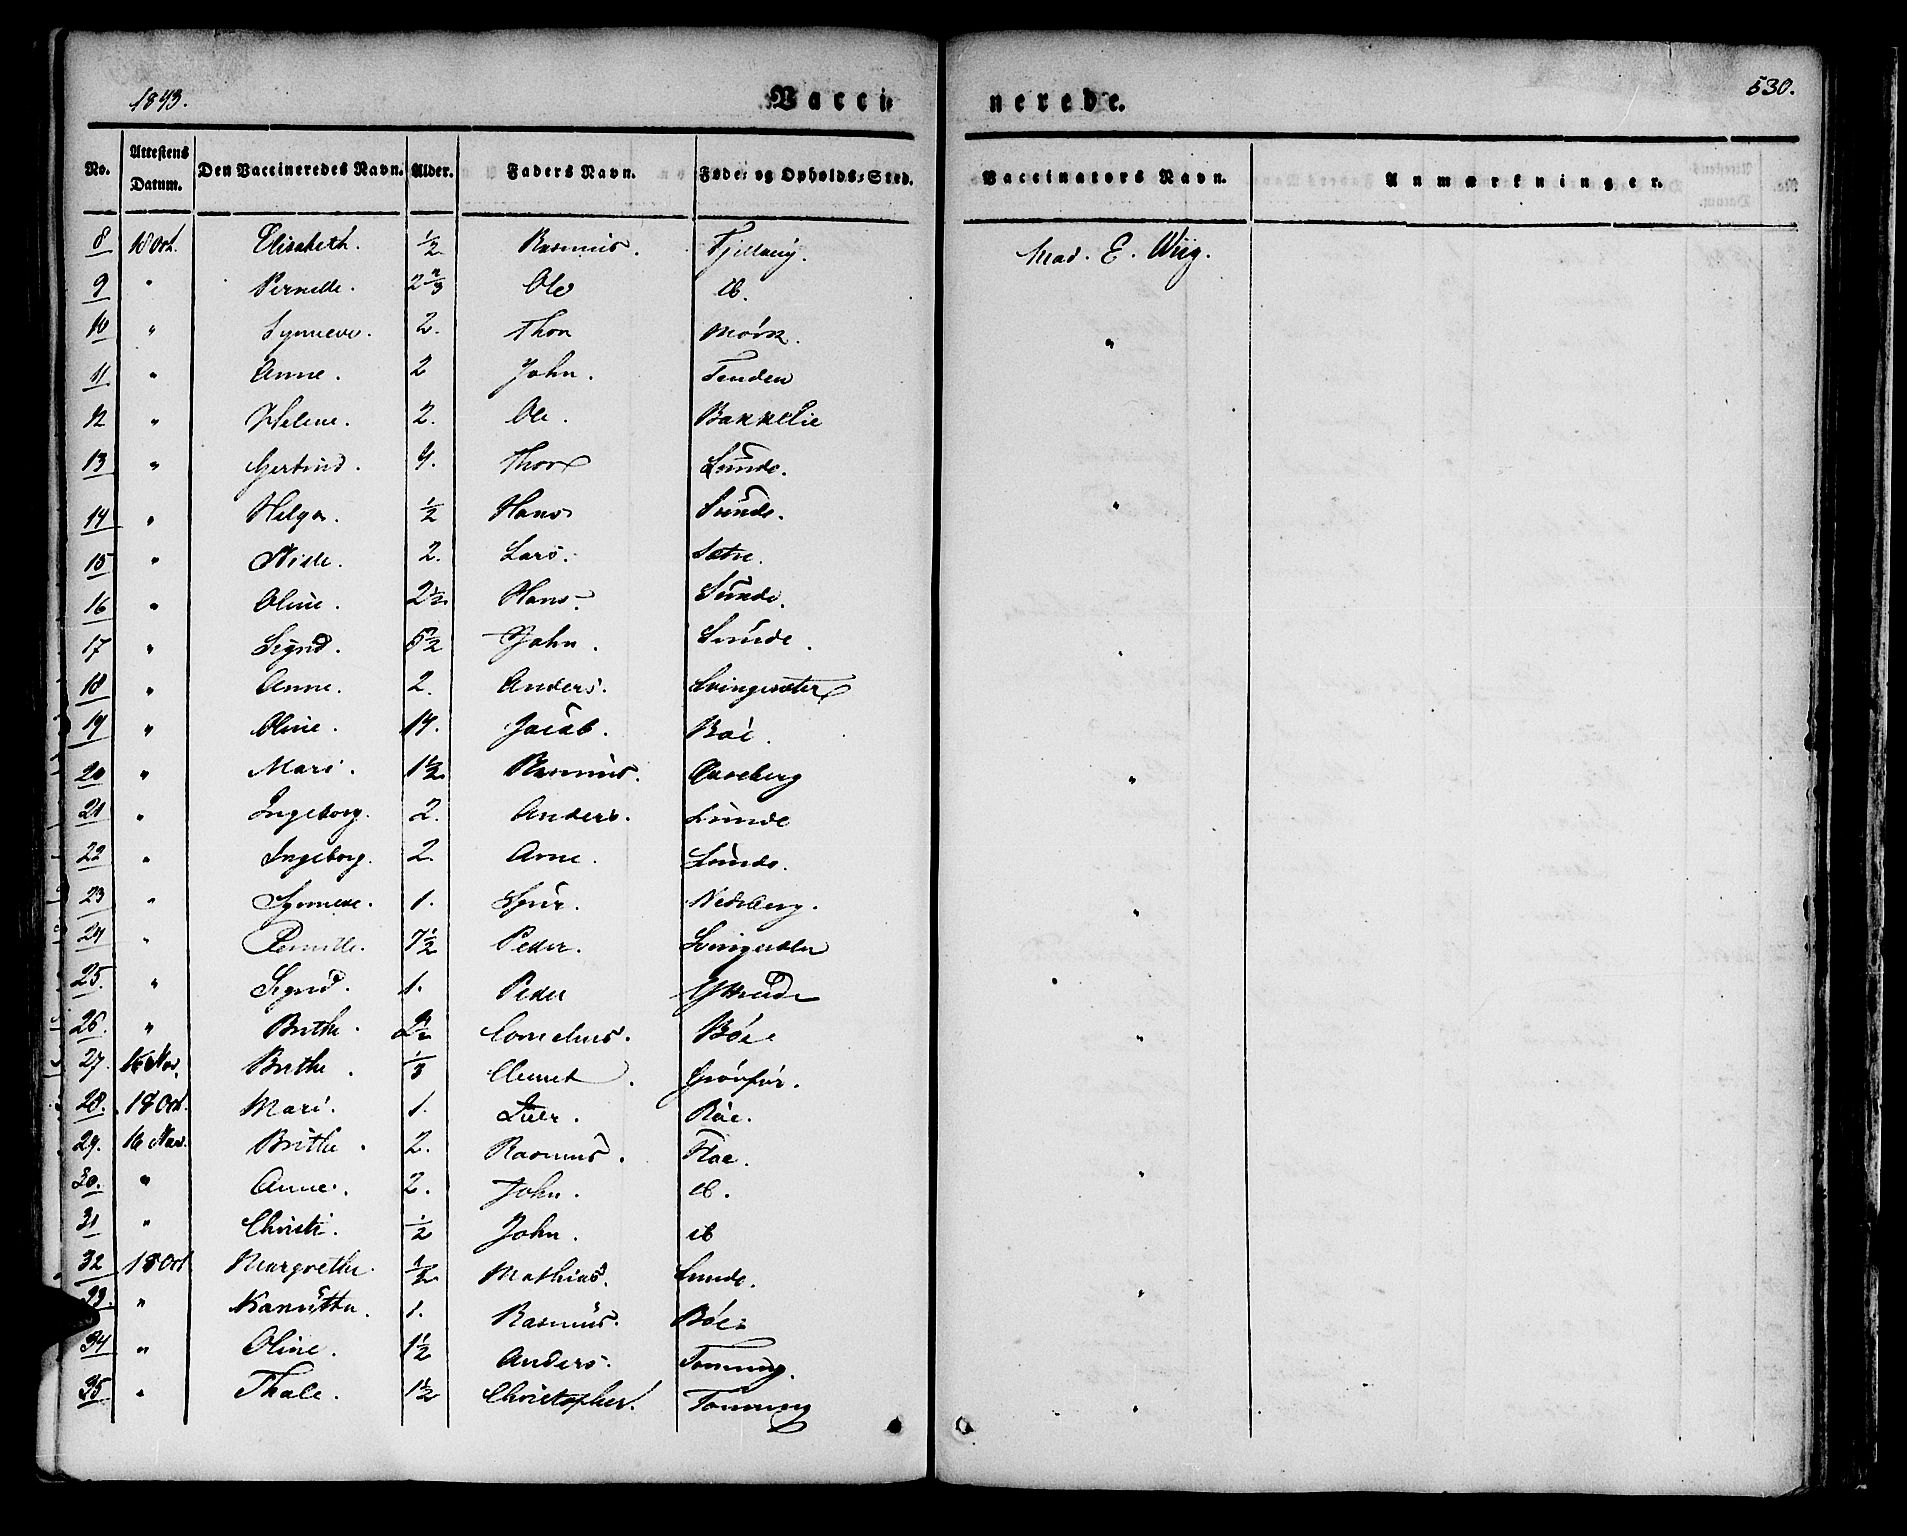 1843. Vacci- nerede. 530.
No. Attestens Datum. Den Vaccineredes Navn. Alder. Faders Navn. Føde- og Opholds-Sted. Vaccinators Navn. Anmærkninger.
8 18 Oct. Elisabeth. 1/2 Rasmus. Mad. E. Wiig.
9 " Pernille. Ole ib.
10 " Synneve. 2. Thor Mórk. "
11 " Anne. 2 John. Tenden
12 " Helene. 2. Ole. Bakkelie
13 " Gertrud. 4. Thor Sunde.
14 " Helga. 1/2 Hans Sunde. "
15 " 2. Lars. Sætre.
16 " Oline. 2 1/2 Hans. Sunde.
17 " Signd. 5 1/2 John. Sunde. "
18 " Anne. 2. Anders. Svingesæter
19 " Oline. 14. Jacob. Böe.
20 " Mari. 1 1/2 Rasmus. "
21 " Ingeborg. 2. Anders. Sunde
22 " Ingeborg. 2. Arne. Sunde.
23 " Synneve. 1. Nedreberg. "
24 " Pernille. 7 1/2 Peder.
25. " Signd. 1. Peder "
26. " Brithe. 2 1/2 Cornelius. Bóe "
27. 16 Nov. Brithe. 1/3 Clemet.
28. 18 Oct. Mari. 1. Böe.
29. 16 Nov. Brithe. 2. Rasmus. Floe.
30. " Anne. 2. John. ib. "
31 " Christi. 1/2 John. ib
32 18 Oct Margrethe. 1/2 Mathias. Sunde. "
33. " 1. Rasmus. Bóe
34 " Oline. 1 1/2 Anders. Tonning.
35 " Thale. 1 1/2 Christopher. Tonning "